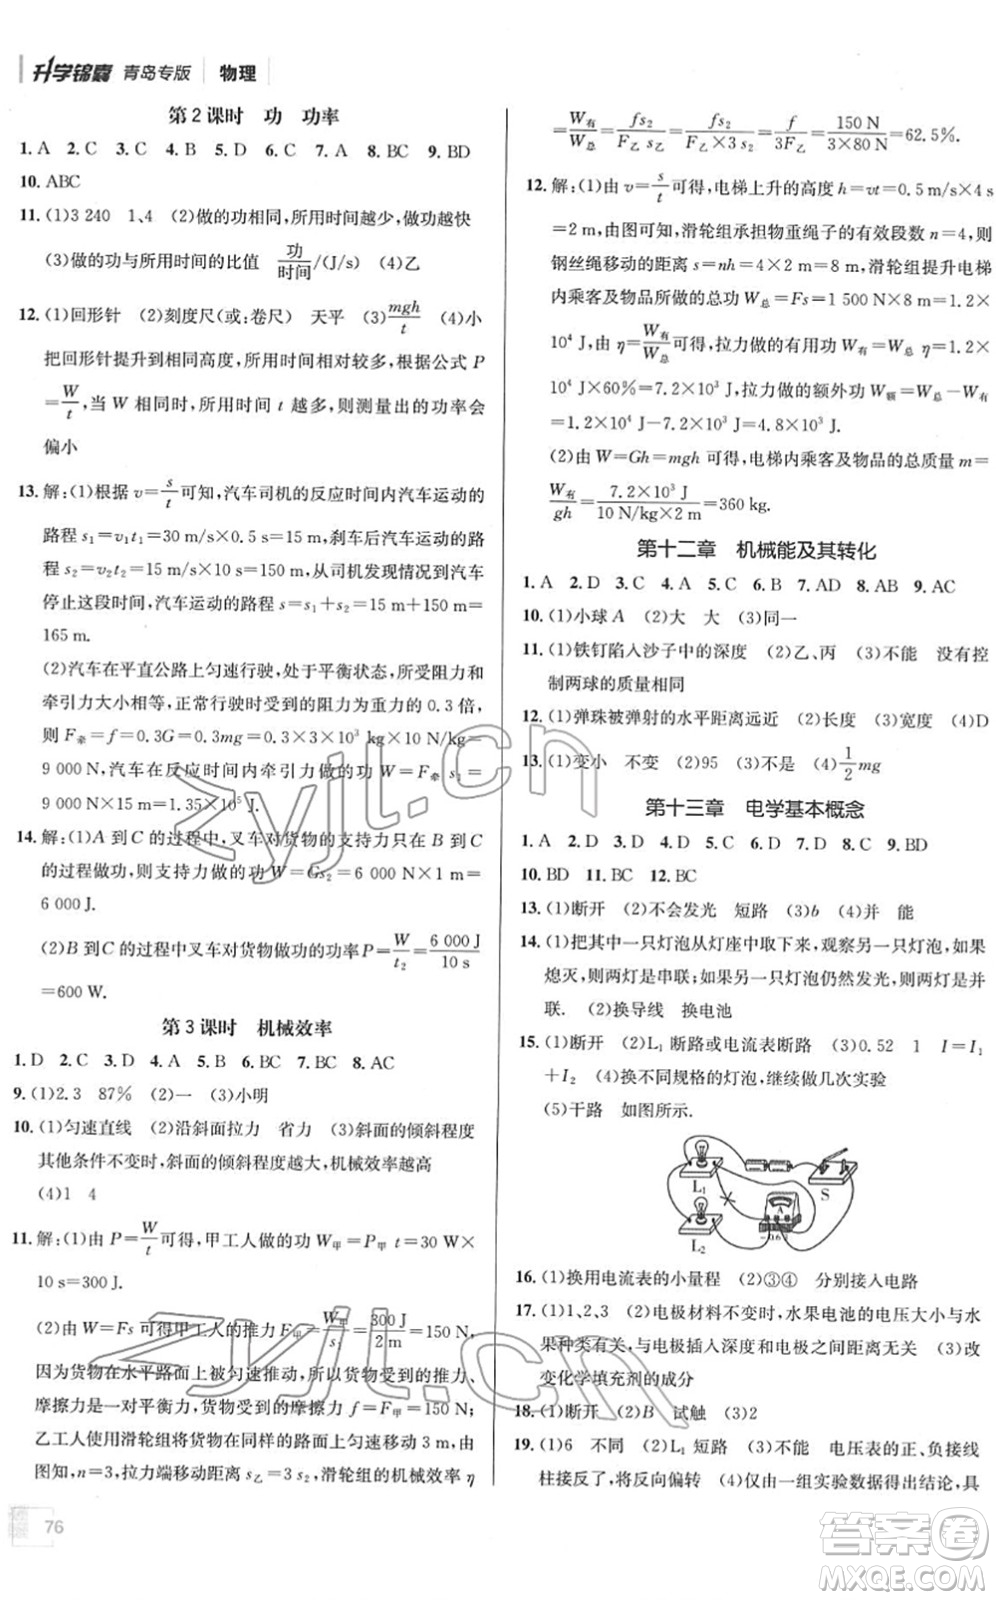 升学锦囊 青岛专版 物理
第2课时 功 功率
1. A 2. C 3. C 4. B 5. D 6. C 7. A 8. BC 9. BD
10. ABC
11. (1)3 240 1、4 (2)做的功相同,所用时间越少,做功越快
(3)做的功与所用时间的比值 功/时间/(J/s) (4)乙
12. (1)回形针 (2)刻度尺(或:卷尺) 天平 (3)mgh/t (4)小
把回形针提升到相同高度,所用时间相对较多,根据公式 P
=W/t,当 W 相同时,所用时间 t 越多,则测量出的功率会
偏小
13. 解:(1)根据 v=s/t可知,汽车司机的反应时间内汽车运动的
路程 s₁=v₁t₁=30 m/s×0.5 s=15 m,刹车后汽车运动的路
程 s₂=v₂t₂=15 m/s×10 s=150 m,从司机发现情况到汽车
停止这段时间,汽车运动的路程 s=s₁+s₂=15 m+150 m=
165 m.
(2)汽车在平直公路上匀速行驶,处于平衡状态,所受阻力和
牵引力大小相等,正常行驶时受到的阻力为重力的 0.3 倍,
则 F牵=f=0.3G=0.3mg=0.3×3×10³ kg×10 N/kg=
9 000 N,汽车在反应时间内牵引力做的功 W=F牵 s₁=
9 000 N×15 m=1.35×10⁵ J.
14. 解:(1)A 到 C 的过程中,叉车对货物的支持力只在 B 到 C
的过程做功,则支持力做的功 W=Gs₂=6 000 N×1 m=
6 000 J.
(2)B 到 C 的过程中叉车对货物做功的功率 P=W/t₂=6 000 J/10 s
=600 W.
第3课时 机械效率
1. D 2. C 3. C 4. A 5. B 6. BC 7. BC 8. AC
9. (1)2.3 87% (2)一 (3)小明
10. (1)匀速直线 (2)沿斜面拉力 省力 (3)斜面的倾斜程度
其他条件不变时,斜面的倾斜程度越大,机械效率越高
(4)1 4
11. 解:(1)由 P=W/t可得,甲工人做的功 W甲=P甲 t=30 W×
10 s=300 J.
(2)由 W=Fs 可得甲工人的推力 F甲=W甲/s₁=300 J/2 m=150 N,
因为货物在水平路面上被匀速推动,所以货物受到的推力、
摩擦力是一对平衡力,货物受到的摩擦力 f=F甲=150 N,
乙工人使用滑轮组将货物在同样的路面上移动 3 m,由图
可知,n=3,拉力端移动距离 s乙=3s₂,滑轮组的机械效率 η
76
=W有/W总=fs₂/F乙 s乙=fs₂/F乙×3 s₂=f/3F乙=150 N/3×80 N=62.5%.
12. 解:(1)由 v=s/t可得,电梯上升的高度 h=vt=0.5 m/s×4 s
=2 m,由图可知,滑轮组承担物重绳子的有效段数 n=4,则
钢丝绳移动的距离 s=nh=4×2 m=8 m,滑轮组提升电梯
内乘客及物品所做的总功 W总=Fs=1 500 N×8 m=1.2×
10⁴ J,由 η=W有/W总可得,拉力做的有用功 W有=W总 η=1.2×
10⁴ J×60%=7.2×10³ J,拉力做的额外功 W额=W总-W有
=1.2×10⁴ J-7.2×10³ J=4.8×10³ J.
(2)由 W=Gh=mgh 可得,电梯内乘客及物品的总质量 m=
W有/gh=7.2×10³ J/10 N/kg×2 m=360 kg.
第十二章 机械能及其转化
1. A 2. D 3. C 4. A 5. C 6. B 7. AD 8. AB 9. AC
10. (1)小球 A (2)大 大 (3)同一
11. (1)铁钉陷入沙子中的深度 (2)乙、丙 (3)不能 没有控
制两球的质量相同
12. (1)弹珠被弹射的水平距离远近 (2)长度 (3)宽度 (4)D
13. (1)变小 不变 (2)95 (3)不是 (4)1/2 mg
第十三章 电学基本概念
1. A 2. D 3. B 4. D 5. C 6. B 7. D 8. C 9. BD
10. BD 11. BC 12. BC
13. (1)断开 (2)不会发光 短路 (3)b (4)并 能
14. (1)把其中一只灯泡从灯座中取下来,观察另一只灯泡,如果
熄灭,则两灯是串联;如果另一只灯泡仍然发光,则两灯是并
联. (2)换导线 换电池
15. (1)断开 (2)L₁ 断路或电流表断路 (3)0.52 1 I=I₁
+I₂ (4)换不同规格的灯泡,继续做几次实验
(5)干路 如图所示.
L₁ S
A
-0.6 3
L₂
16. (1)换用电流表的小量程 (2)③④ 分别接入电路
17. (1)1、2、3 (2)电极材料不变时,水果电池的电压大小与水
果种类有关,与电极插入深度和电极之间距离无关 (3)改
变化学填充剂的成分
18. (1)断开 (2)B 试触 (3)2
19. (1)6 不同 (2)L₁ 短路 (3)不能 电压表的正、负接线
柱接反了,将反向偏转 (4)仅由一组实验数据得出结论,具
zyjl.cn
zyjl.cn
答案圈
MXQE.COM